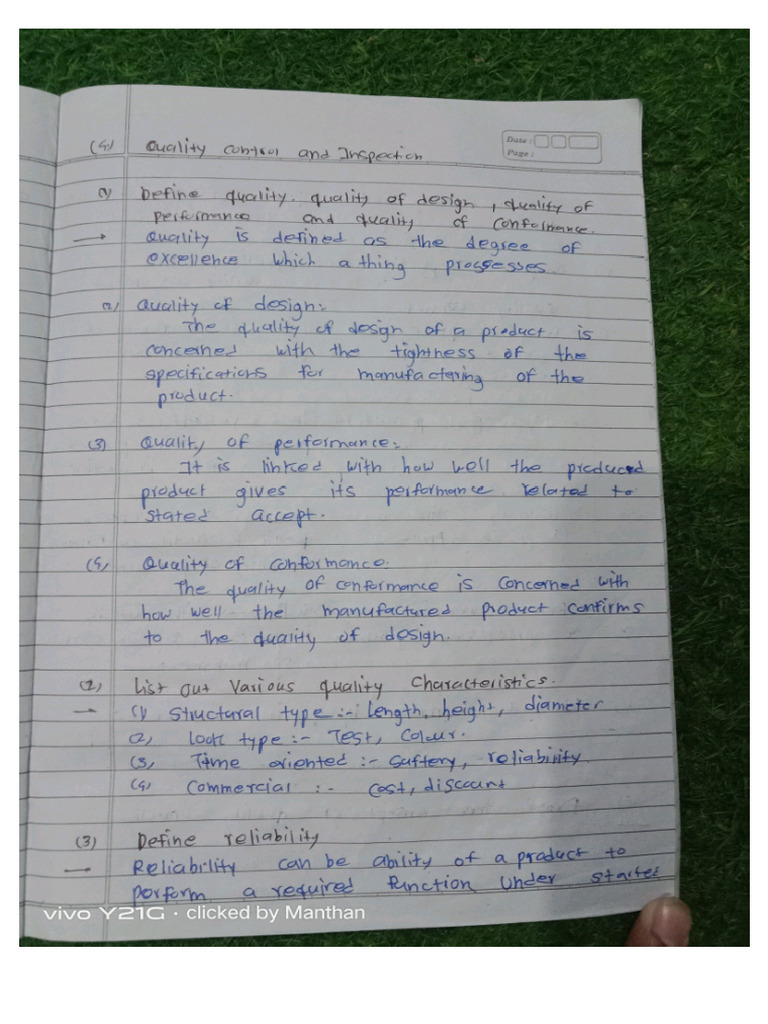 (4) Quality control and Inspection
Date :
Page :
1) Define quality. quality of design, quality of
performance and quality of conformance.
→ Quality is defined as the degree of
excellence which a thing prossesses
2) Quality of design:
The quality of design of a product is
concerned with the tightness of the
specifications for manufactering of the
product.
(3) Quality of performance:
It is linked with how well the produced
product gives its performance related to
stated accept.
(4) Quality of conformance:
The quality of conformance is concerned with
how well the manufactured product confirms
to the quality of design.
(2) List out Various quality Characteristics.
→ (1) Structural type :- Length, height, diameter
(2) Look type :- Test, Colour.
(3) Time oriented :- Saftery, reliability
(4) Commercial :- Cost, discount
(3) Define reliability
— Reliability can be ability of a product to
perform a required function under started
vivo Y21G · clicked by Manthan